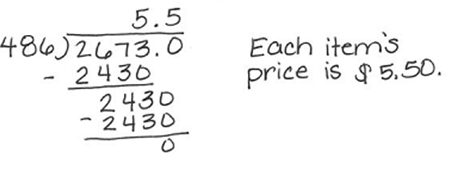 5.5
486)2673.0
- 2430
2430
- 2430
0
Each item's
price is $5.50.